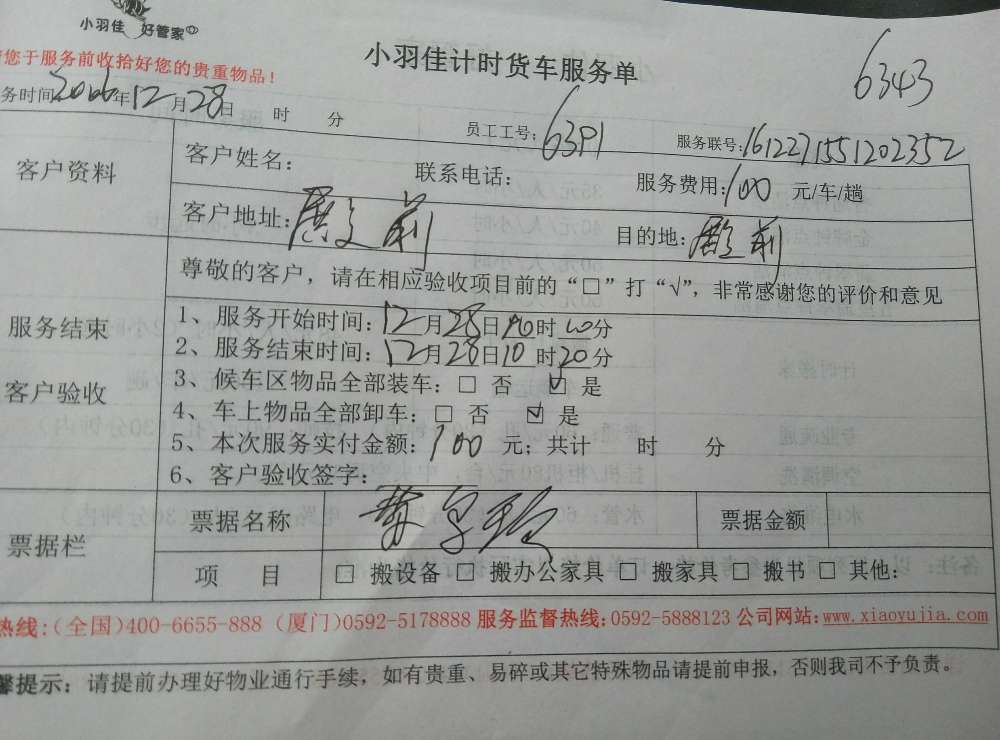 小羽佳 好管家
您于服务前收拾好您的贵重物品！
小羽佳计时货车服务单
6343
务时间2016年12月28日 时 分
员工工号：6391
服务联号：1612271551202352
客户资料
客户姓名： 联系电话： 服务费用：100 元/车/趟
客户地址：殿前 目的地：殿前
尊敬的客户，请在相应验收项目前的“□”打“√”，非常感谢您的评价和意见
服务结束
客户验收
1、服务开始时间：12月28日10时00分
2、服务结束时间：12月28日10时20分
3、候车区物品全部装车：□ 否 ☑ 是
4、车上物品全部卸车：□ 否 ☑ 是
5、本次服务实付金额：100 元；共计 时 分
6、客户验收签字：
票据栏
票据名称 票据金额
项 目 □ 搬设备 □ 搬办公家具 □ 搬家具 □ 搬书 □ 其他：
热线：(全国)400-6655-888 (厦门)0592-5178888 服务监督热线：0592-5888123 公司网站：www.xiaoyujia.com
馨提示：请提前办理好物业通行手续，如有贵重、易碎或其它特殊物品请提前申报，否则我司不予负责。